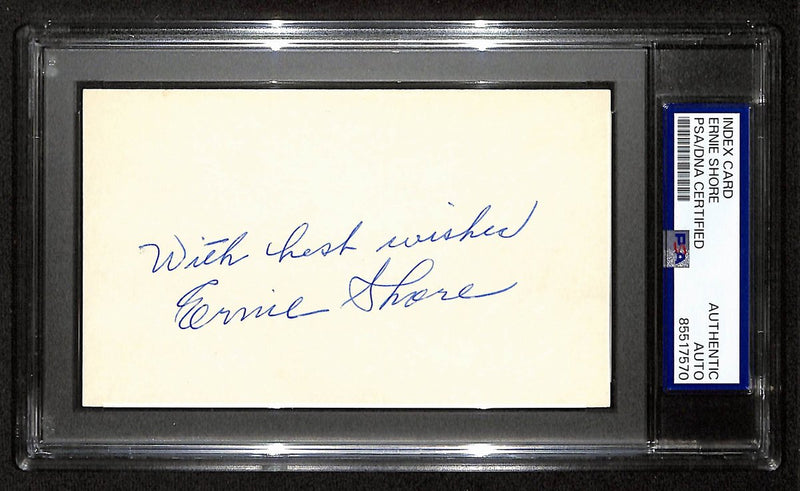 With best wishes
Ernie Shore
INDEX CARD
ERNIE SHORE
PSA/DNA CERTIFIED
PSA
AUTHENTIC
AUTO
85517570